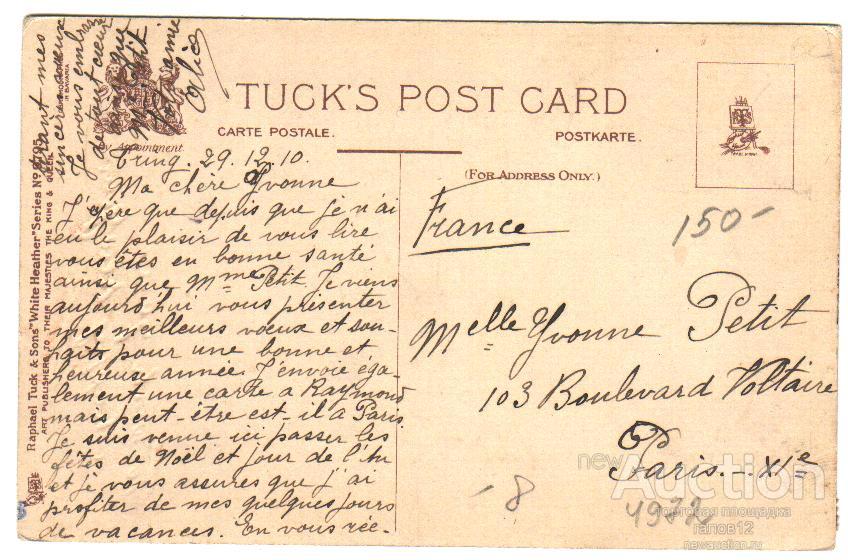 TUCK'S POST CARD
CARTE POSTALE.
POSTKARTE.
By Appointment
(For Address Only.)
Raphael Tuck & Sons' "White Heather" Series No
ART PUBLISHERS TO THEIR MAJESTIES THE KING & QUEEN
Tring. 29.12.10.
Ma chère Yvonne
J'espère que depuis que je n'ai
eu le plaisir de vous lire
vous êtes en bonne santé
ainsi que Mme Petit. Je viens
aujourd'hui vous présenter
mes meilleurs voeux et sou-
haits pour une bonne et
heureuse année. J'envoie éga-
lement une carte a Raymond
mais peut-être est-il a Paris.
Je suis venue ici passer les
fêtes de Noël et jour de l'An
et je vous assures que j'ai
profiter de mes quelques jours
de vacances. En vous rée-
mes
sincères voeux
Je vous embrasse
de tout coeur
ainsi que
Mme Petit
Votre amie
France
Melle Yvonne Petit
103 Boulevard Voltaire
Paris.-XIe
150-
-8
newAuction
торговая площадка
гапов12
newauction.ru